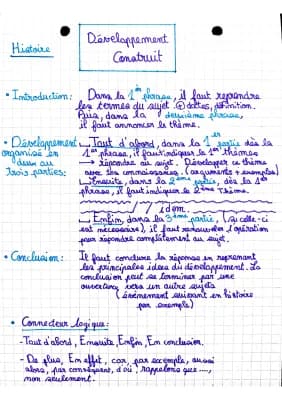 Histoire
Développement
Construit
• Introduction : Dans la 1ère phrase, il faut reprendre
les termes du sujet ⊕ dates, définition.
Puis, dans la deuxième phrase,
il faut annoncer le thème.
• Développement organisé en deux ou trois parties :
→ Tout d'abord, dans la 1ère partie dès la
1ère phrase, il faut indiquer le 1er thème
→ répondre au sujet. Développer ce thème
avec tes connaissances. (arguments + exemples)
→ Ensuite, dans la 2ème partie, dès la 1ère
phrase, il faut indiquer le 2ème thème.
idem
→ Enfin, dans la 3ème partie, (si celle-ci
est nécessaire), il faut renouveler l'opération
pour répondre complètement au sujet.
• Conclusion : Il faut conclure la réponse en reprenant
les principales idées du développement. La
conclusion peut se terminer par une
ouverture vers un autre sujet
(évènement suivant en histoire
par exemple)
• Connecteur logique :
- Tout d'abord, Ensuite, Enfin, En conclusion.
- De plus, En effet, car, par exemple, aussi
alors, par conséquent, d'où, rappelons que ...,
non seulement.